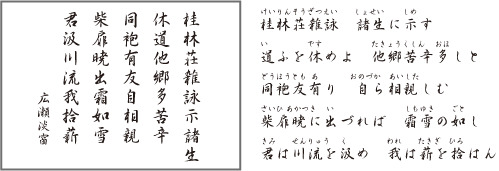 桂林荘雑詠示諸生
休道他郷多苦辛
同袍有友自相親
柴扉暁出霜如雪
君汲川流我拾薪
広瀬淡窗
けいりんそうざつえい しょせい しめ
桂林荘雑詠 諸生に示す
い や たきょうくしん おほ
道ふを休めよ 他郷苦辛多しと
どうほうとも あ おのづか あいした
同袍友有り 自ら相親しむ
さいひ あかつき い しもゆき ごと
柴扉暁に出づれば 霜雪の如し
きみ せんりゅう く われ たきぎ ひろ
君は川流を汲め 我は薪を拾はん